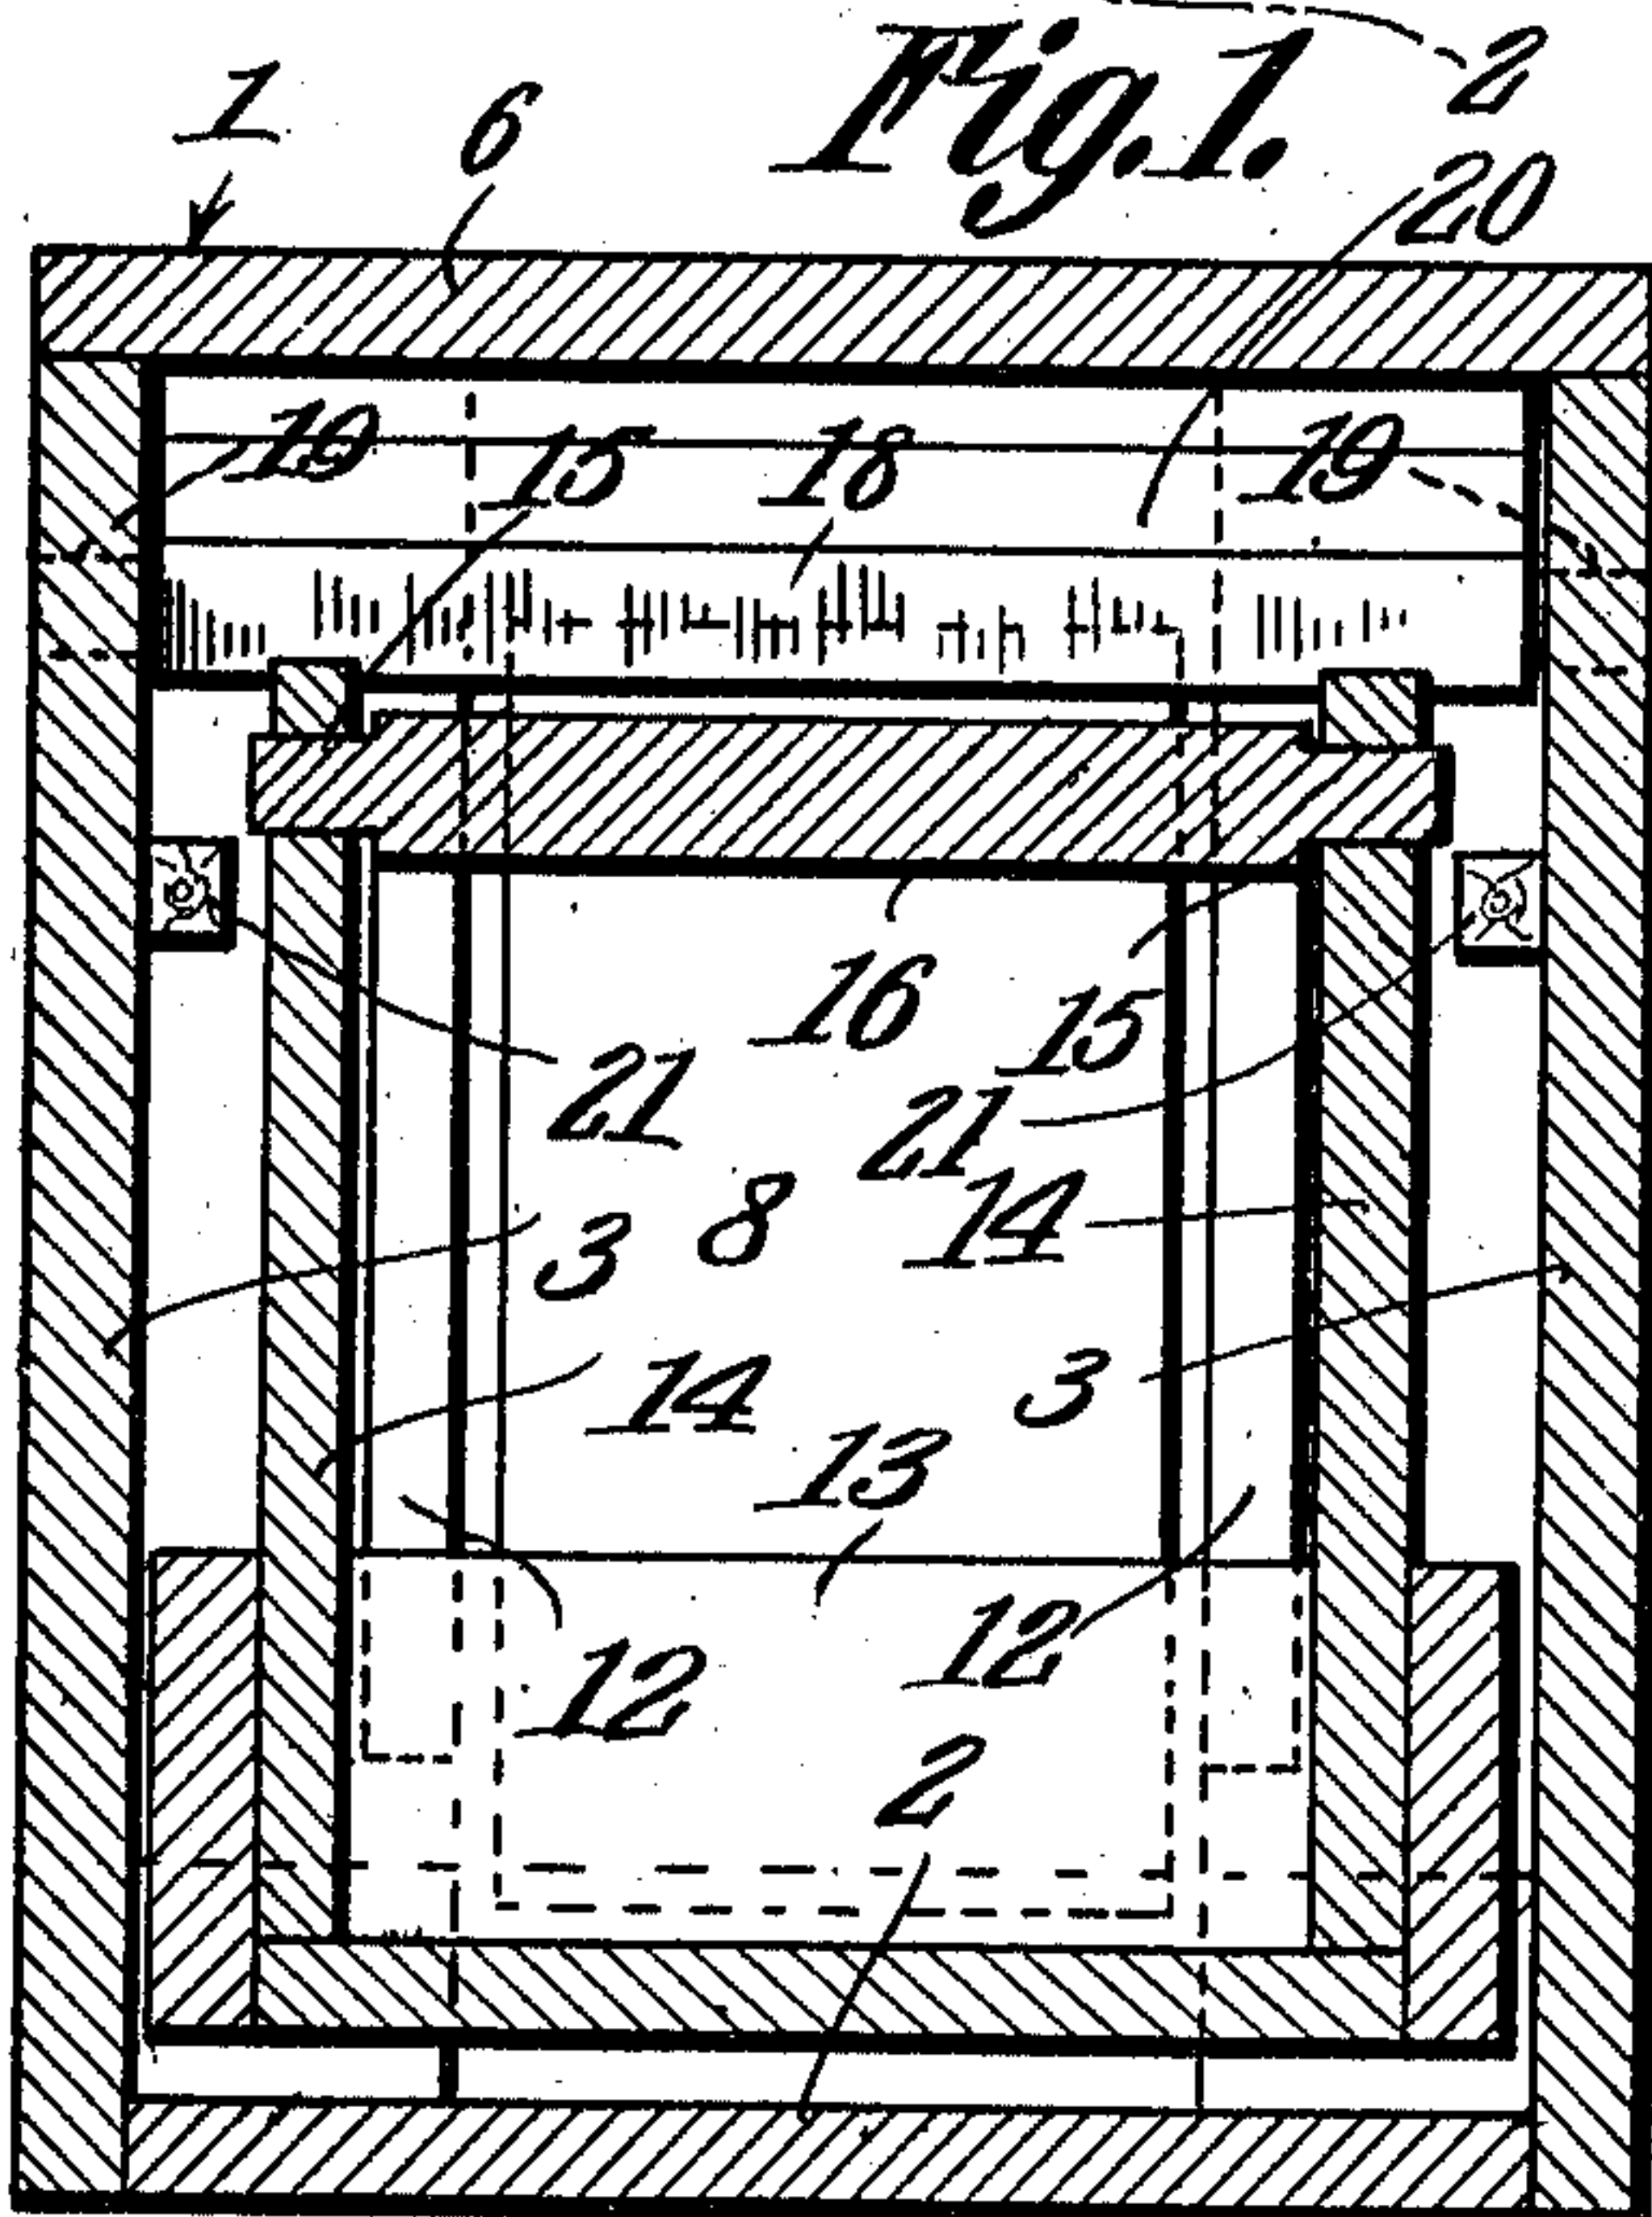 Fig. 1.
1
6
2
20
19
15
18
19
16
15
21
21
8
14
3
14
3
13
12
12
2